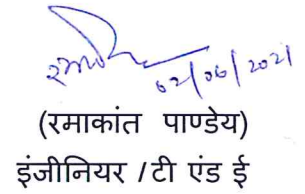 02/06/2021
(रमाकांत पाण्डेय)
इंजीनियर /टी एंड ई